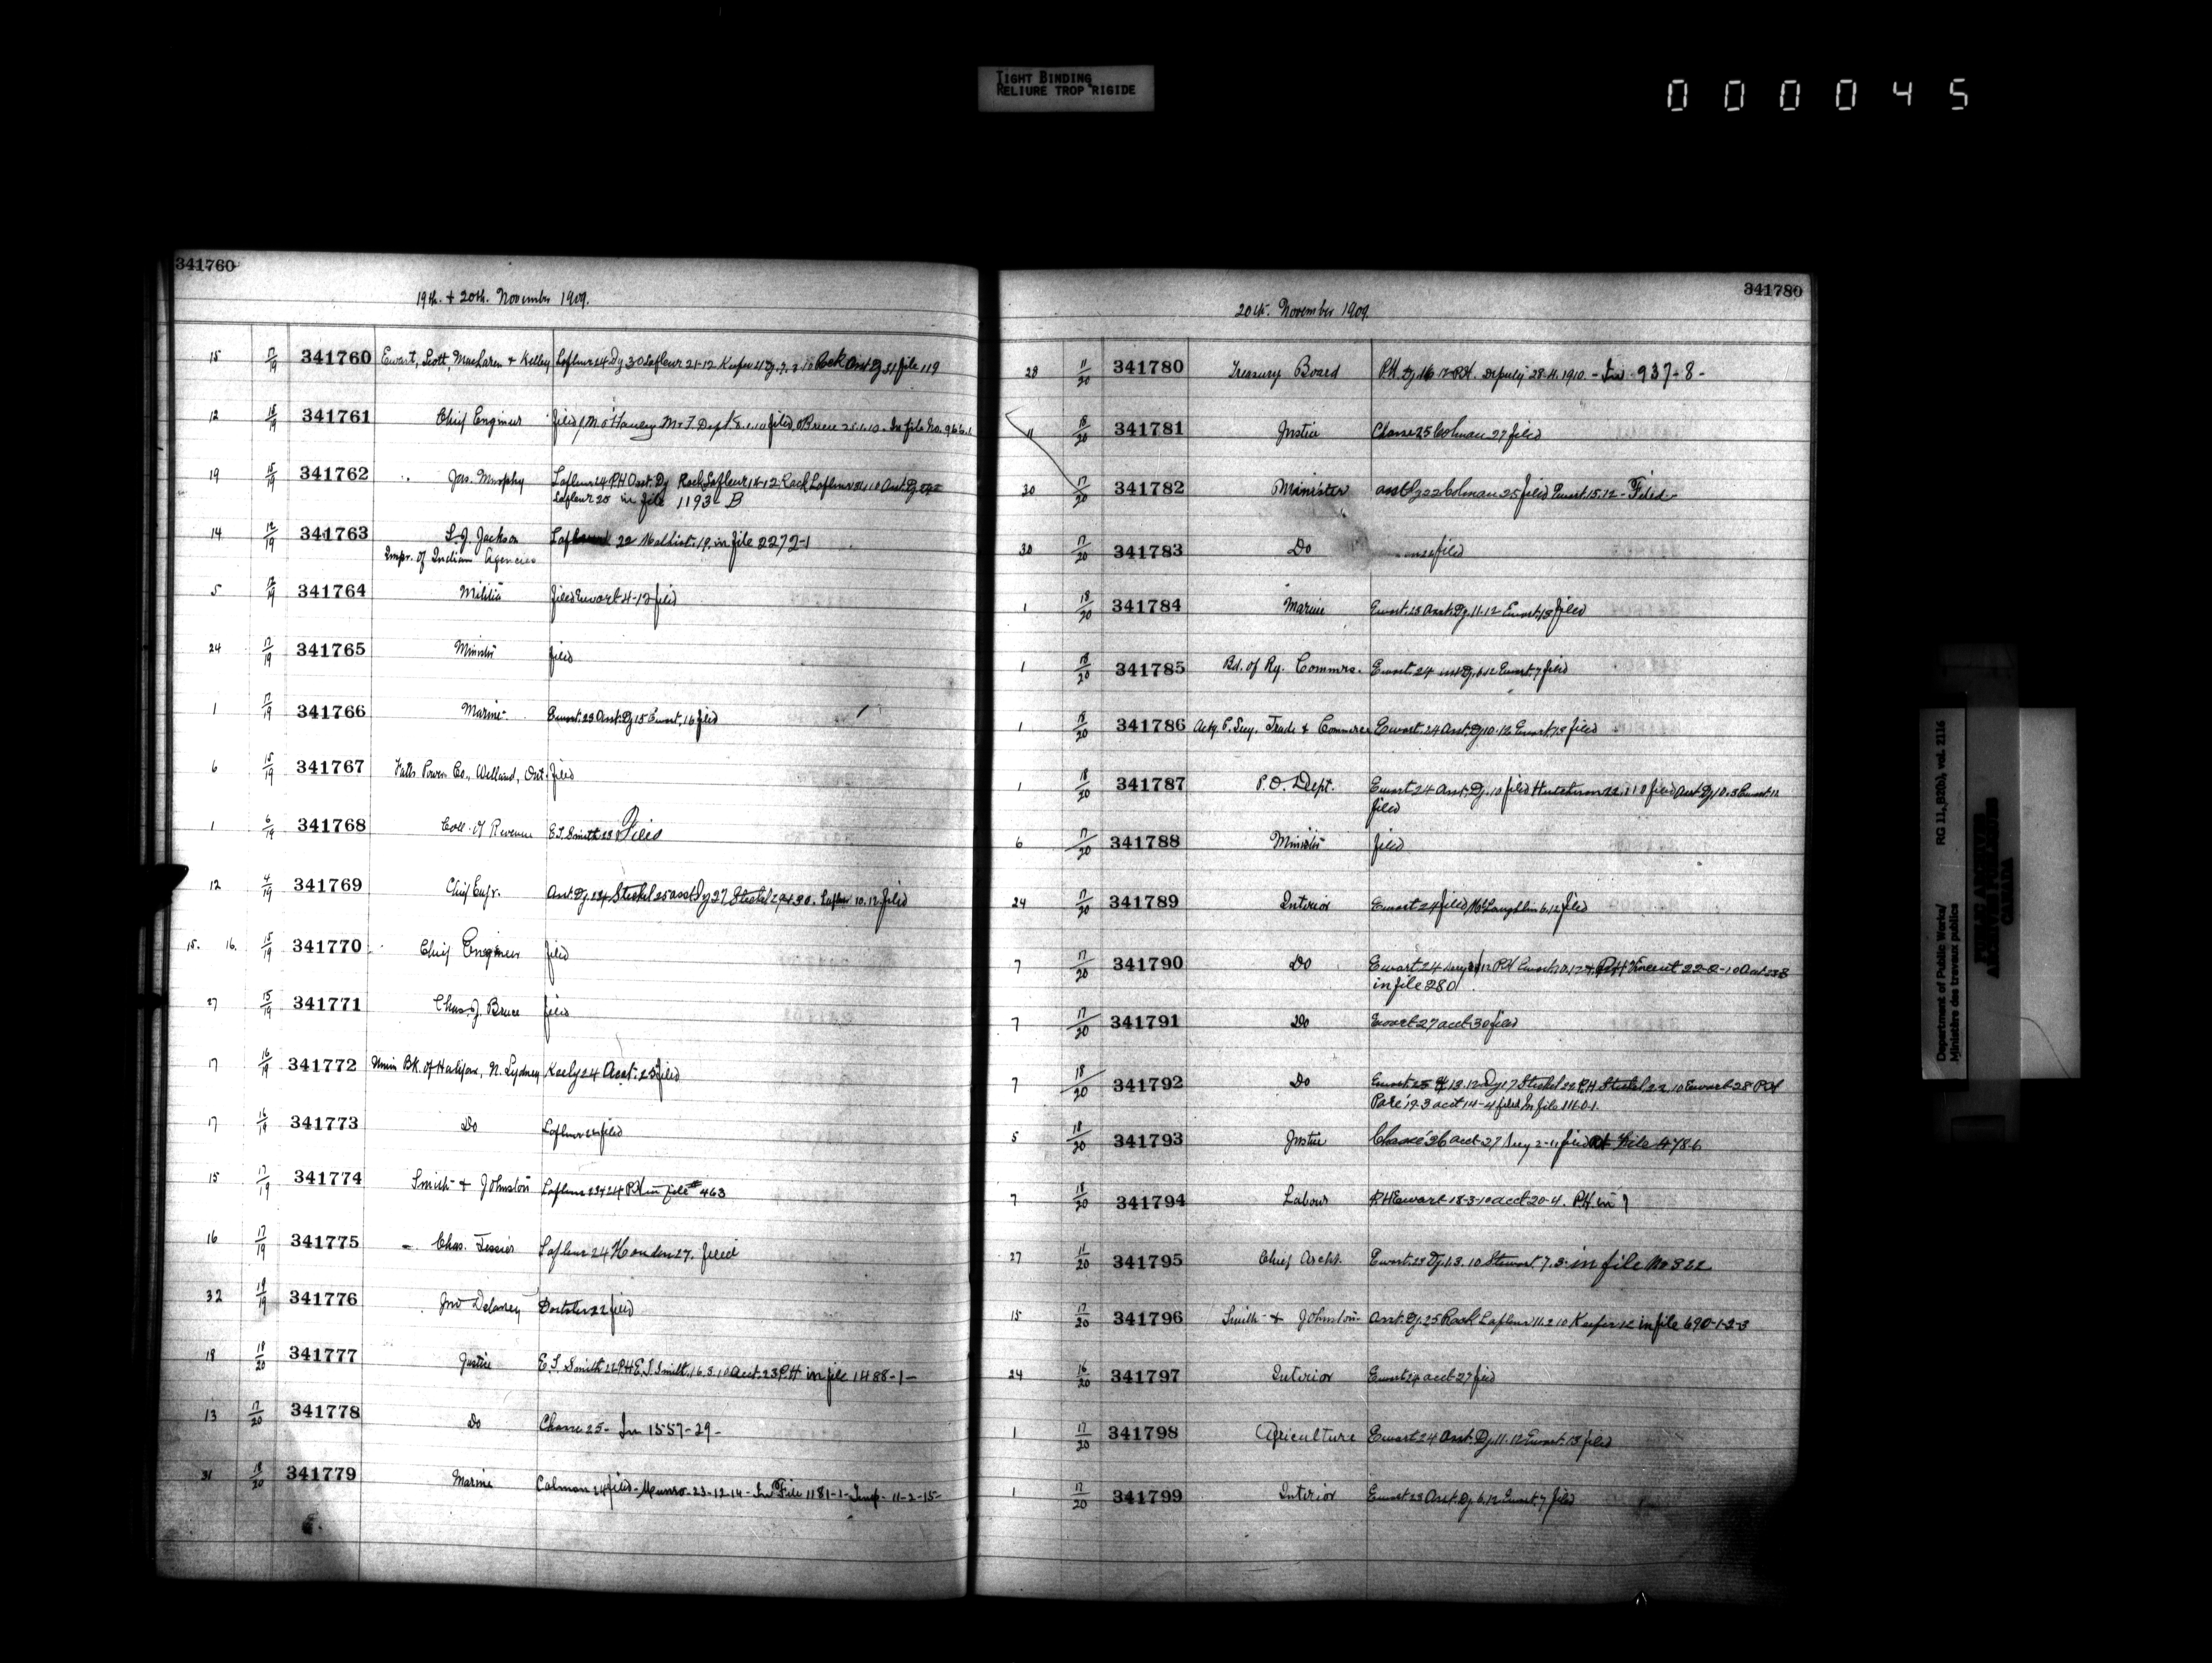 TIGHT BINDING
RELIURE TROP RIGIDE
000045
341760
19th. + 20th. November 1909.
15 17/19 341760 Ewart, Scott, MacLaren + Kelley Lafleur 24 Dy 30 Lafleur 21-12 Keefer file 119
12 18/19 341761 Chief Engineer filed Dept filed In file No. 966-1
19 15/19 341762 Jas. Murphy Lafleur 24 P.H. Asst. Dy Rack Lafleur 18-12 Rack Lafleur Asst. Dy
Lafleur 25 in file 1193-B
14 12/19 341763 S.J. Jackson 22 19. in file 2272-1
Inspr. of Indian Agencies
5 17/19 341764 Militia filed Ewart 4-12 filed
24 17/19 341765 Minister filed
1 17/19 341766 Marine Ewart. 23 Asst. Dy 15 Ewart, 16 filed
6 15/19 341767 Falls Power Co., Welland, Ont. filed
1 6/19 341768 Coll. of Revenue E.T. Smith 23 Filed
12 4/19 341769 Chief Engr. Asst. Dy. Steckel 25 asst Dy 27 Steckel Lafleur 10.12 filed
15. 16. 15/19 341770 Chief Engineer filed
27 15/19 341771 Chas. J. Bruce filed
17 16/19 341772 Union Bk. of Halifax, N. Sydney Keely 24 Acct. 25 filed
17 16/19 341773 Do Lafleur 24 filed
15 17/19 341774 Smith + Johnston Lafleur 23+24 P.H. in file # 463
16 17/19 341775 Chas. Tessier Lafleur 24 27. filed
32 19/19 341776 Jno Delaney 22 filed
18 18/20 341777 Justice E.T. Smith 22 P.H. E.T. Smith, 16.3.10 Acct. 23 P.H in file 1488-1-
13 17/20 341778 Do Chasse 25- In 1557-29-
31 18/20 341779 Marine Colman 24 filed - Munro - 23-12-14 - In File 1181-1- 11-2-15-
341780
20th. November 1909.
28 11/20 341780 Treasury Board P.H. Dy 16 P.H. Deputy 28.11.1910. - In 937-8-
11 18/20 341781 Justice Chasse 25 Colman 27 filed
30 17/20 341782 Minister asst Dy 22 Colman 25 filed Ewart. 15.12 - Filed -
30 17/20 341783 Do filed
1 18/20 341784 Marine Ewart. 25 Asst. Dy. 11.12 Ewart, 13 filed
1 18/20 341785 Bd. of Ry. Commrs. Ewart. 24 asst Dy. 6.12 Ewart. 7 filed
1 18/20 341786 Actg D. Secy. Trade + Commerce Ewart. 24 Asst. Dy 10.12 Ewart, 13 filed
1 18/20 341787 P.O. Dept. Ewart 24 Asst. Dy. 10 filed Hutchison 22.1.10 filed Asst Dy 10.3 Ewart. 12
filed
6 17/20 341788 Minister filed
24 17/20 341789 Interior Ewart 24 filed McLaughlin 6.12 filed
7 17/20 341790 Do Ewart 24 P.H. Ewart P.H. Vincent 22-2-10
in file 280
7 17/20 341791 Do Ewart 27 acct 30 filed
7 18/20 341792 Do Ewart. 25 13.12 Dy 17 Steckel 22 P.H. Steckel 22.10 Ewart 28 P.H
Paré 19-3 acct 14-4 filed In file 1160-1.
5 18/20 341793 Justice Chassé 26 acct 27 filed File 478-6
7 18/20 341794 Labour P.H Ewart 18-3-10 acct 20-4. P.H. in
27 11/20 341795 Chief Archt. Ewart. 23 Dy. 1.3.10 Stewart 7.3. in file No 322
15 17/20 341796 Smith + Johnston Asst. Dy. 25 Rack Lafleur 11.2.10 Keefer 12 in file 690-1-2-3
24 16/20 341797 Interior Ewart 24 acct 27 filed
1 17/20 341798 Agriculture Ewart 24 Asst. Dy. 11.12 Ewart. 13 filed
1 17/20 341799 Interior Ewart 23 Asst. Dy. 6.12 Ewart. 7 filed
Department of Public Works/ RG 11, B2(b), vol. 2116
Ministère des travaux publics
PUBLIC ARCHIVES
ARCHIVES PUBLIQUES
CANADA